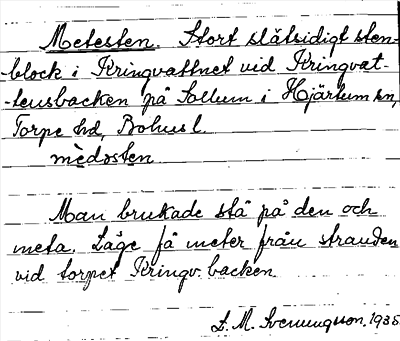 Metesten. Stort slätsidigt sten-
-block i Kringvattnet vid Kringvat-
-tensbacken på Sollum i Hjärtum sn,
Torpe hd, Bohusl.
mèdosten
Man brukade stå på den och
meta. Läge få meter från stranden
vid torpet Kringv. backen
L. M. Svenungsson, 1935